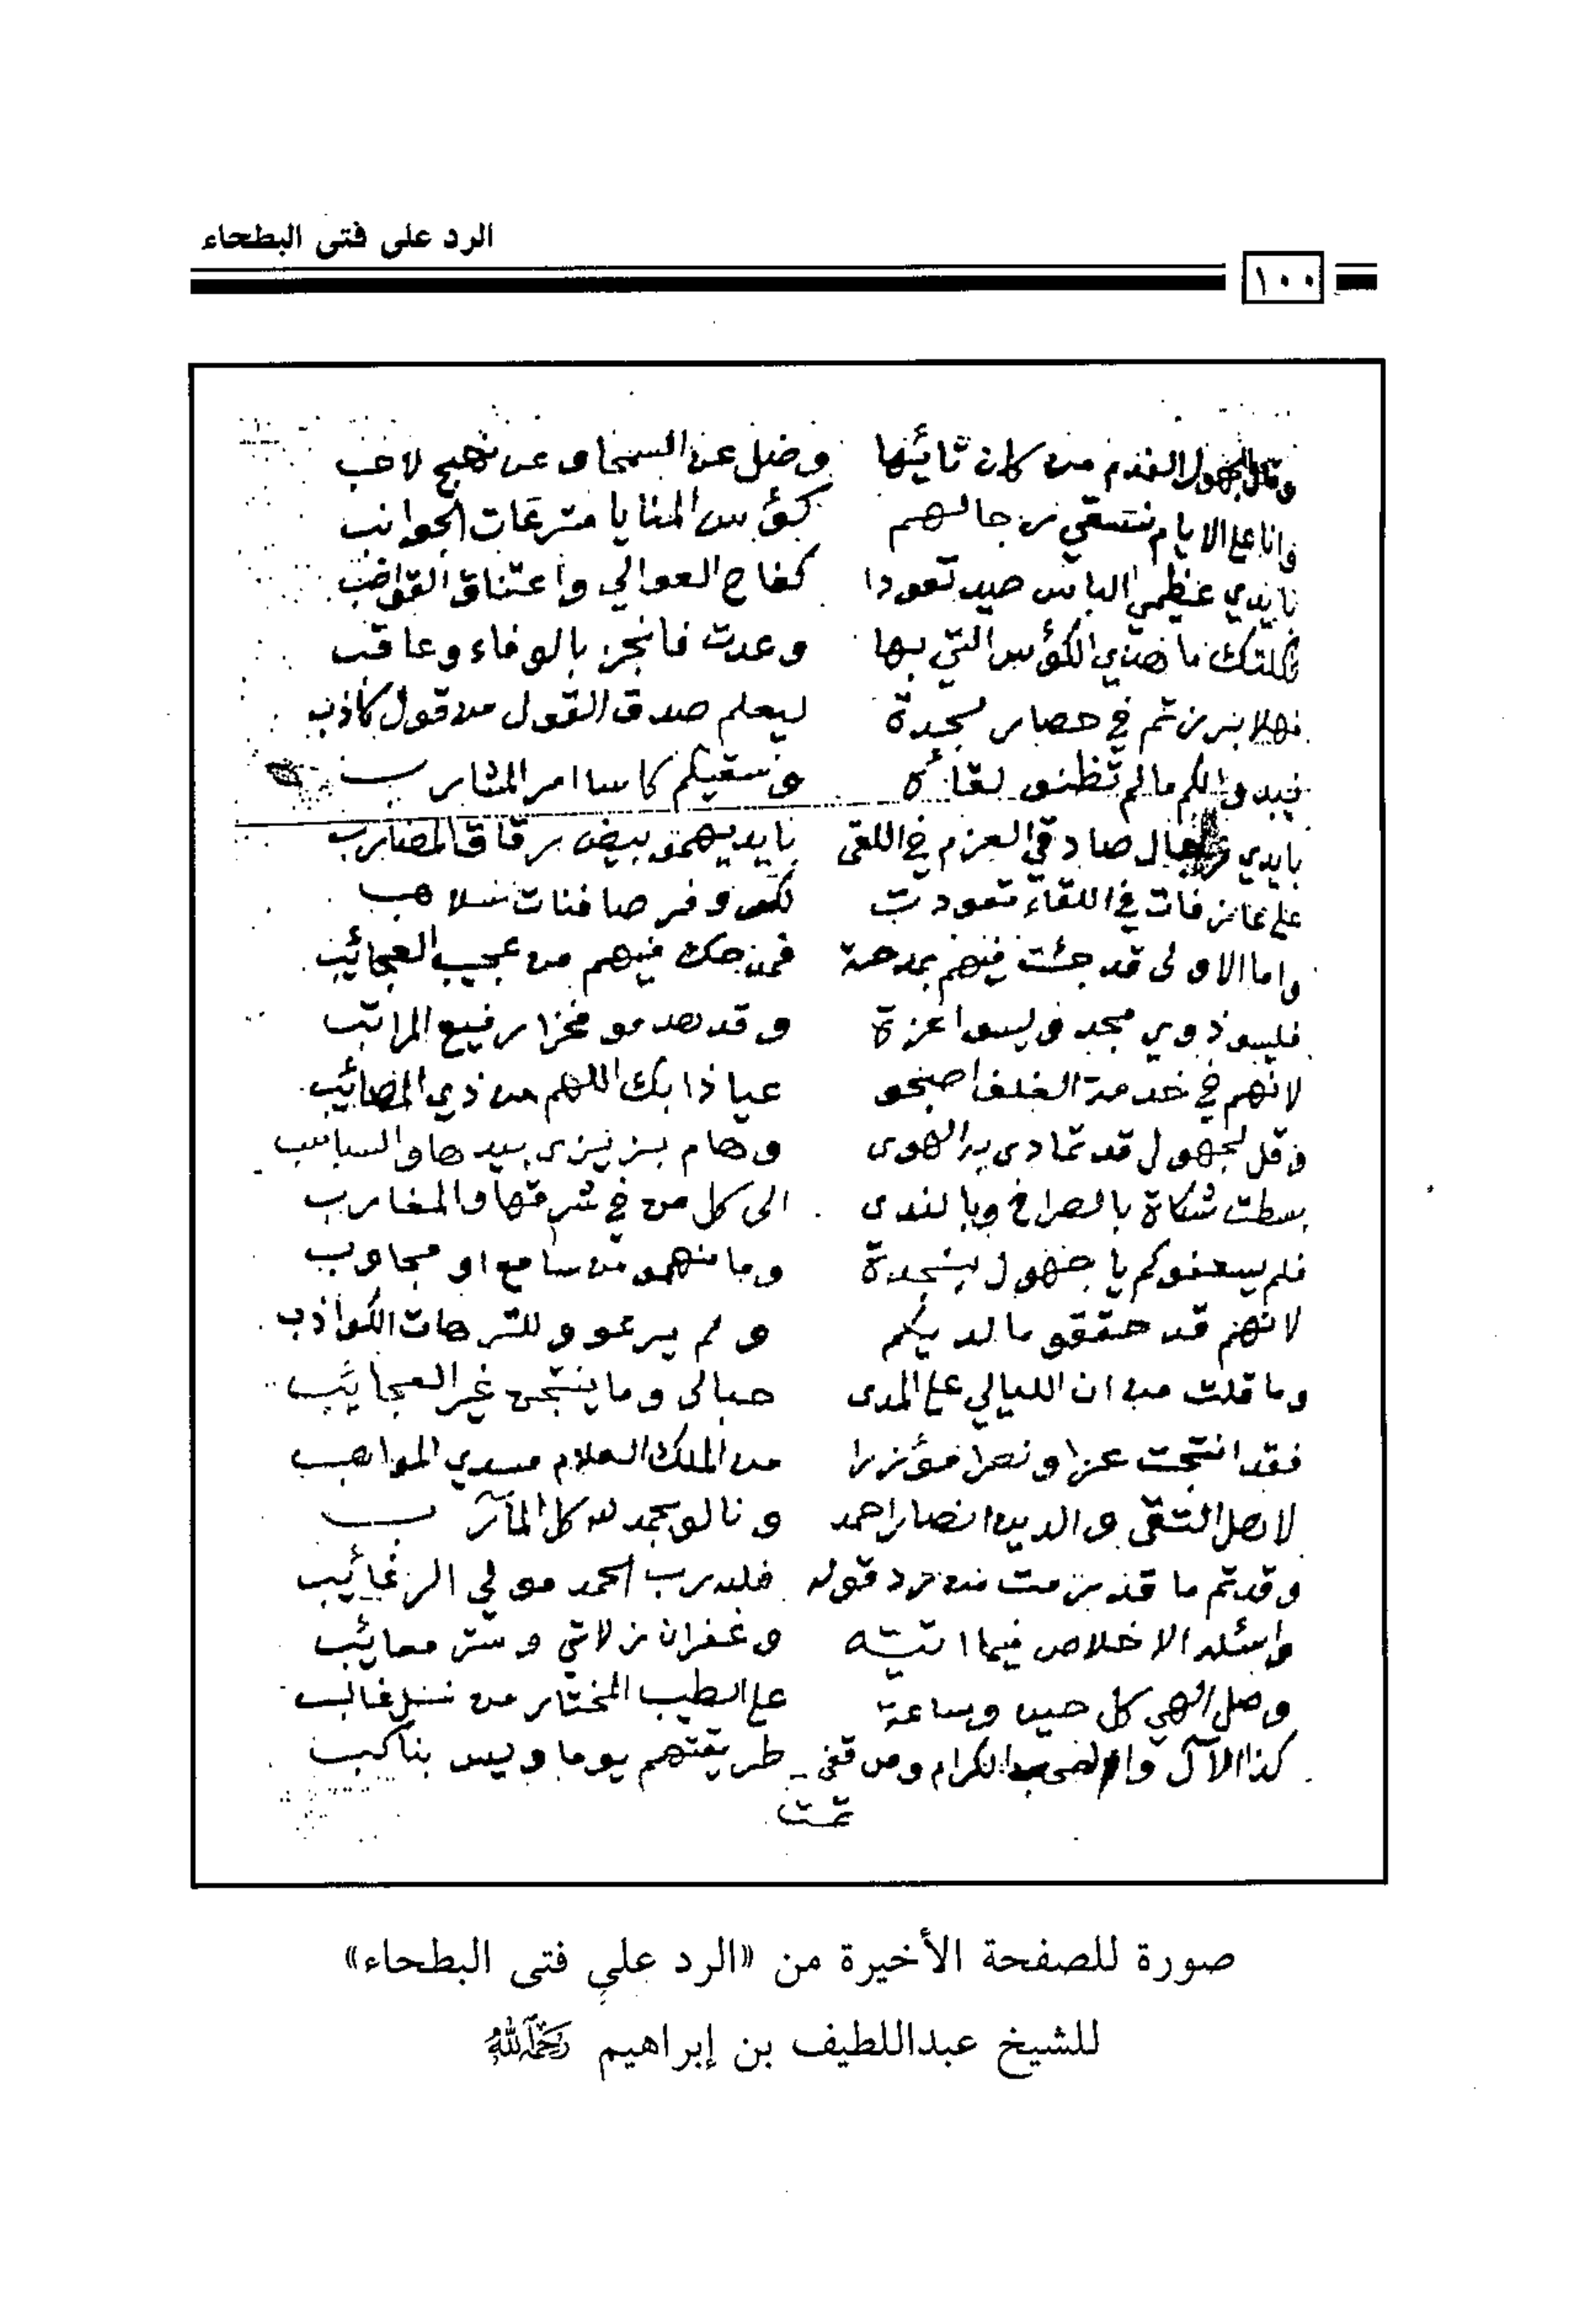 الرد على فتى البطحاء
١٠٠
من كان تائها وضل عن السمحا وعن نهج لاحب
وانا على الايام نسقي رجالهم كؤس المنايا مترعات الجوانب
بايدي عظيمي الباس صيد تعودا كفاح العوالي واعتناق القواضب
ثكلتك ما هذي الكؤس التي بها وعدت فانجز بالوفاء وعاقب
فهلا برزتم في حصار لجدة ليعلم صدق القول من قول كاذب
فيبدو لكم مالم تظنو لقائه ونسقيكم كاسا امر المشارب
بايدي رجال صادقي العزم في اللقى بايديهمو بيض رقاق المضارب
على عازفات في اللقاء تعودت لكر وفر صافنات سلاهب
واما الاولى قد جئت فيهم بمدحة فمدحك فيهم من عجيب العجائب
فليسو ذوي مجد وليسوا اعزة وقد هدمو فخرا رفيع المراتب
لانهم في خدمة الغلف اصبحو عياذا بك اللهم من ذي المصائب
وقل لجهول قد تمادى به الهوى وهام بزيزى بيدها والسباسب
بسطت شكاة بالصراخ وبالندى الى كل من في شرقها والمغارب
فلم يسعفوكم يا جهول بنجدة وما منهمو من سامع او مجاوب
لانهم قد حققو ما لديكم ولم يرعوو للترهات الكواذب
وما قلت من ان الليالي على المدى حبالى وما ينتجن غير العجائب
فقد انتجت عزا ونصرا مؤزرا من الملك العلام مسدي المواهب
لاهل التقى والدين انصار احمد ونالو بحمد لله كل المآرب
وقد تم ما قد رمت من رد قوله فلله رب الحمد مولي الرغائب
واسئله الاخلاص فيما اتيته وغفران زلاتي وستر معائب
وصل الهي كل حين وساعة على الطيب المختار من نسل غالب
كذا الآل والصحب الكرام ومن قفى طريقتهم يوما وليس بناكب
تمت
صورة للصفحة الأخيرة من «الرد على فتى البطحاء»
للشيخ عبداللطيف بن إبراهيم رحمه الله